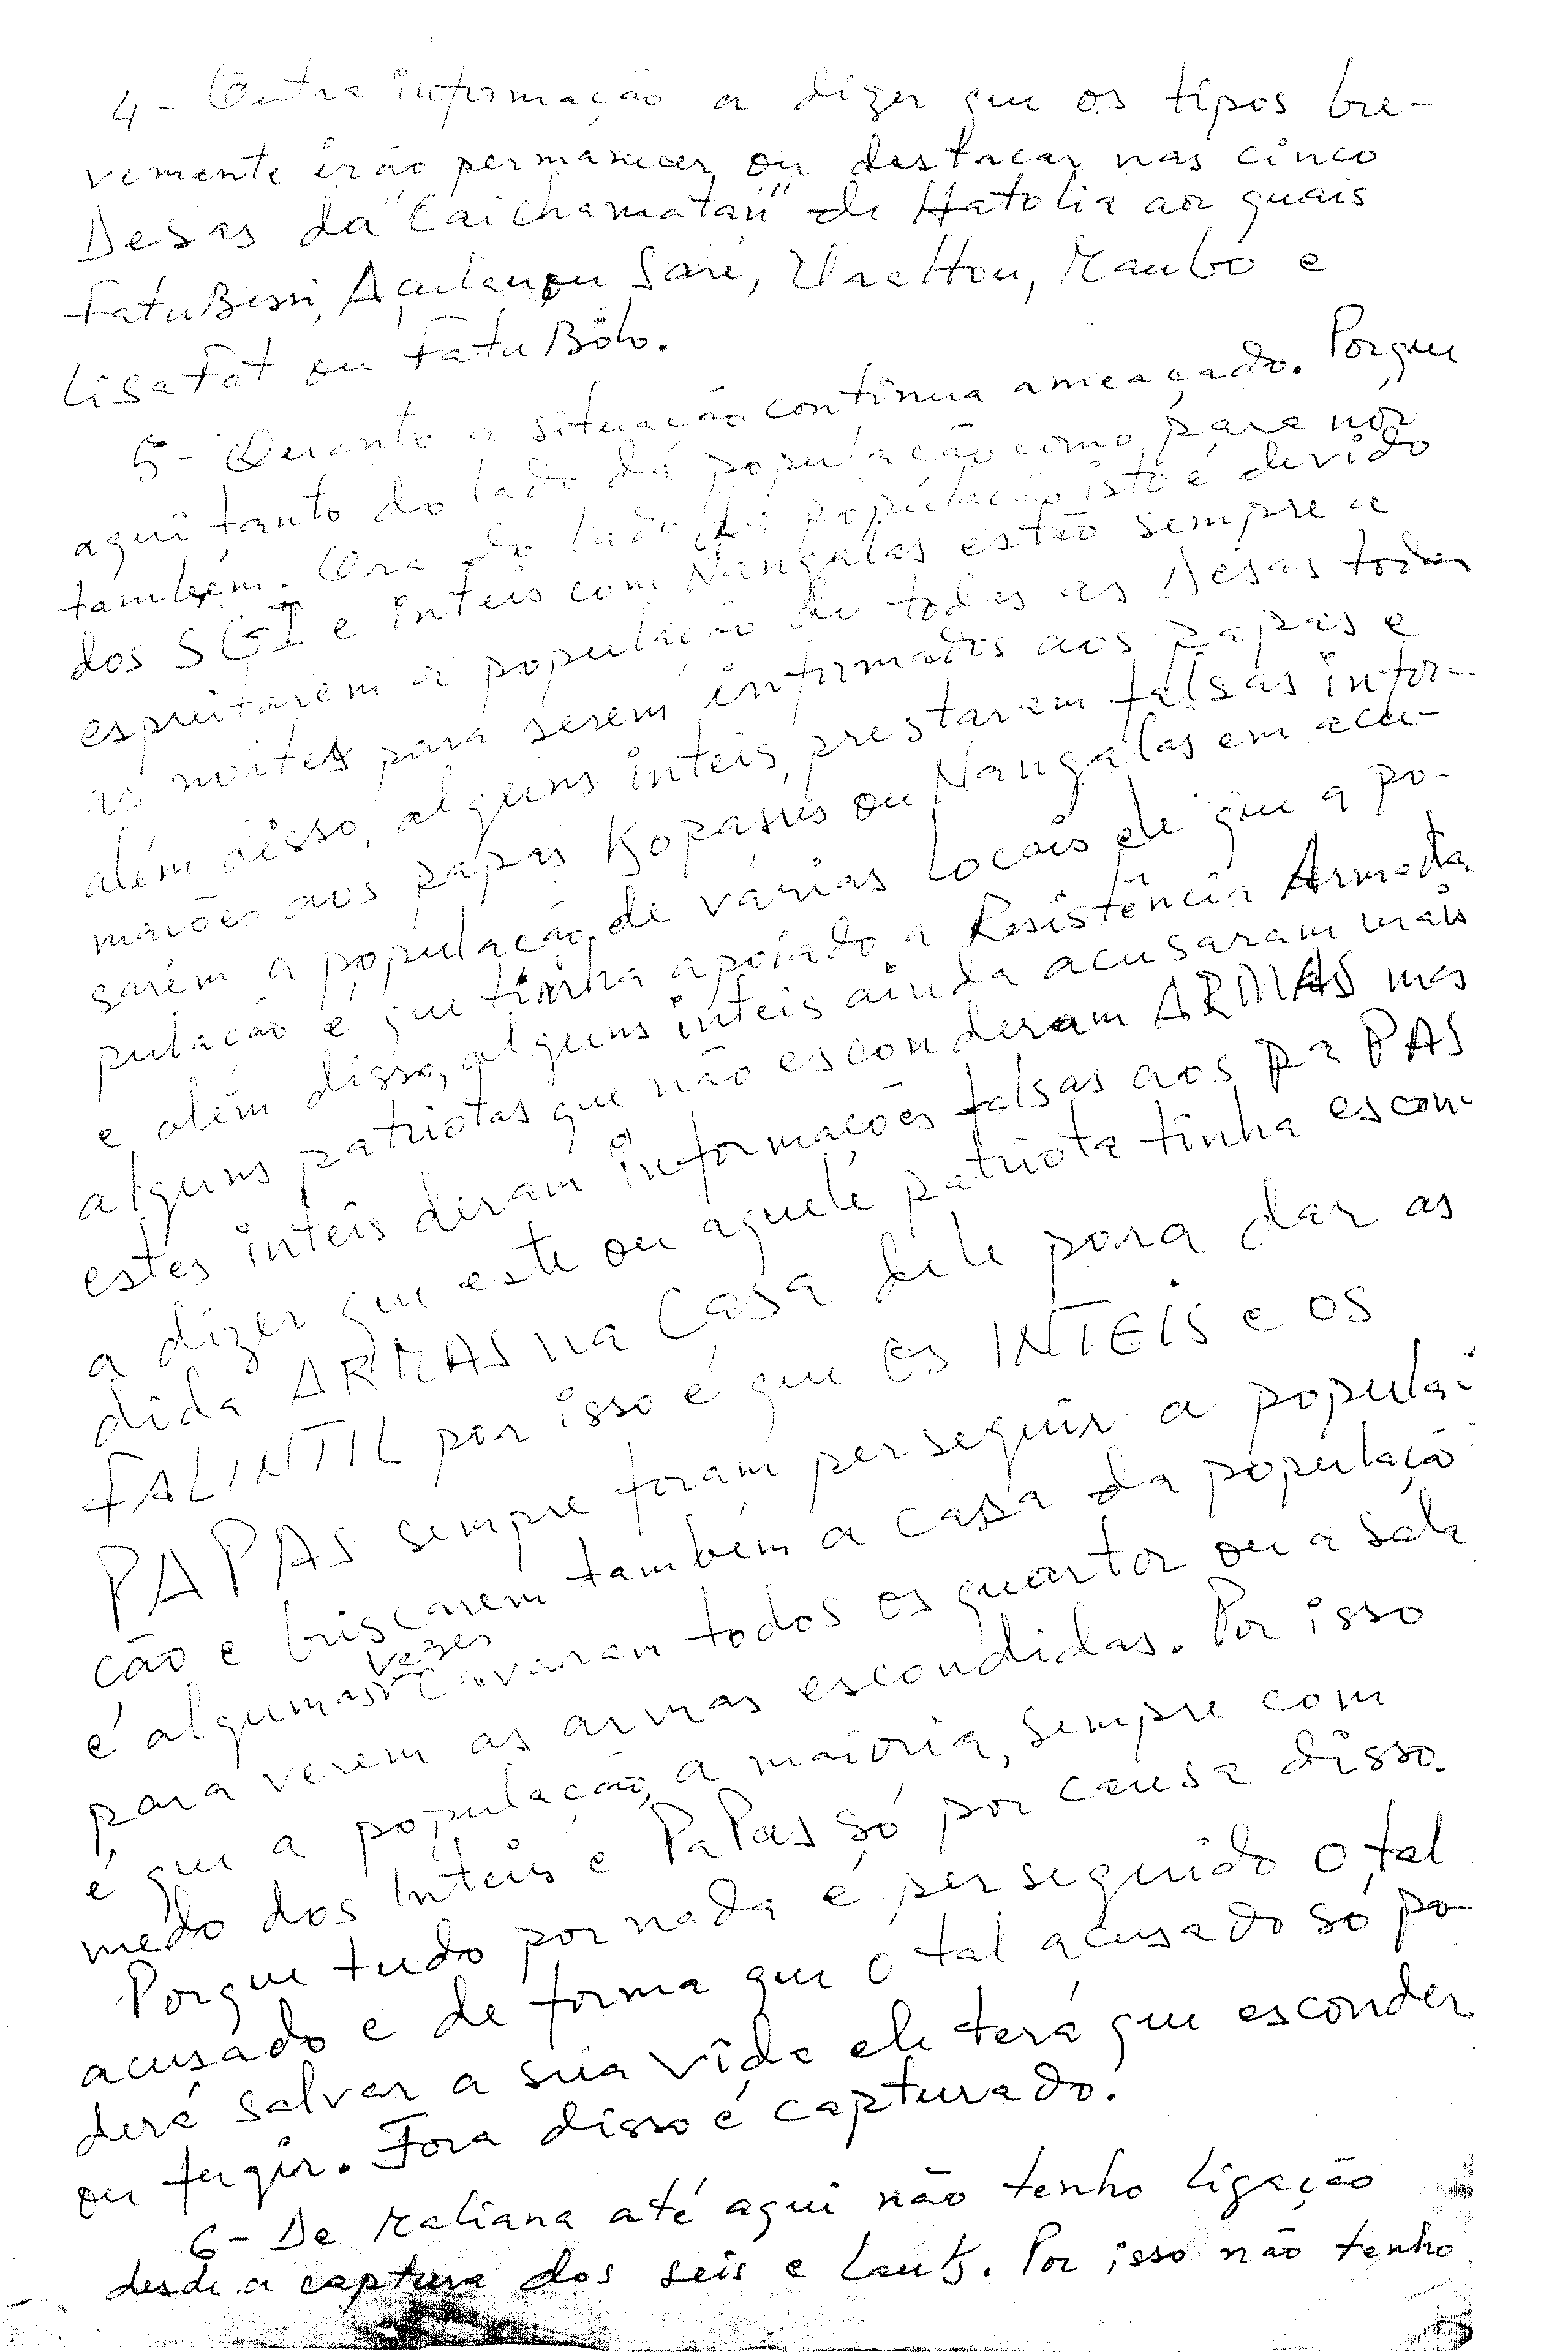 4 - Outra informação a dizer que os tipos bre-
vemente irão permanecer ou destacar nas cinco
Desas da "Caichamatan" de Hatolia aos quais
FatuBessi, Açulau ou Saré, UraeHou, Maubo e
LisaFat ou FatuBolo.
5 - Quanto a situação continua ameaçado. Porque
aqui tanto do lado da população como para nós
também. Ora do lado da população isto é devido
dos SGI e inteis com Nangalas estão sempre a
espreitarem a população de todas as Desas todas
as noites para serem informados aos papas e
além disso, alguns inteis prestaram falsas infor-
mações aos papas Kopasus ou Nangalas em acu-
sarem a população de várias locais de que a po-
pulação é que tinha apoiado a Resistência Armada
e além disso, alguns inteis ainda acusaram mais
alguns patriotas que não esconderam ARMAS mas
estes inteis deram informações falsas aos paPAS
a dizer que este ou aquele patriota tinha escon-
dida ARMAS na Casa dele para dar as
FALINTIL por isso é que os INTEIS e os
PAPAS sempre foram perseguir a popula-
ção e buscarem também a casa da população
é algumas vezes cavaram todos os quartos ou a sala
para verem as armas escondidas. Por isso
é que a população, a maioria, sempre com
medo dos Inteis e PaPas só por causa disso.
Porque tudo por nada é perseguido o tal
acusado e de forma que o tal acusado só po-
derá salvar a sua vida ele terá que esconder
ou fugir. Fora disso é capturado.
6 - De Maliana até aqui não tenho ligação
desde a captura dos seis e . Por isso não tenho